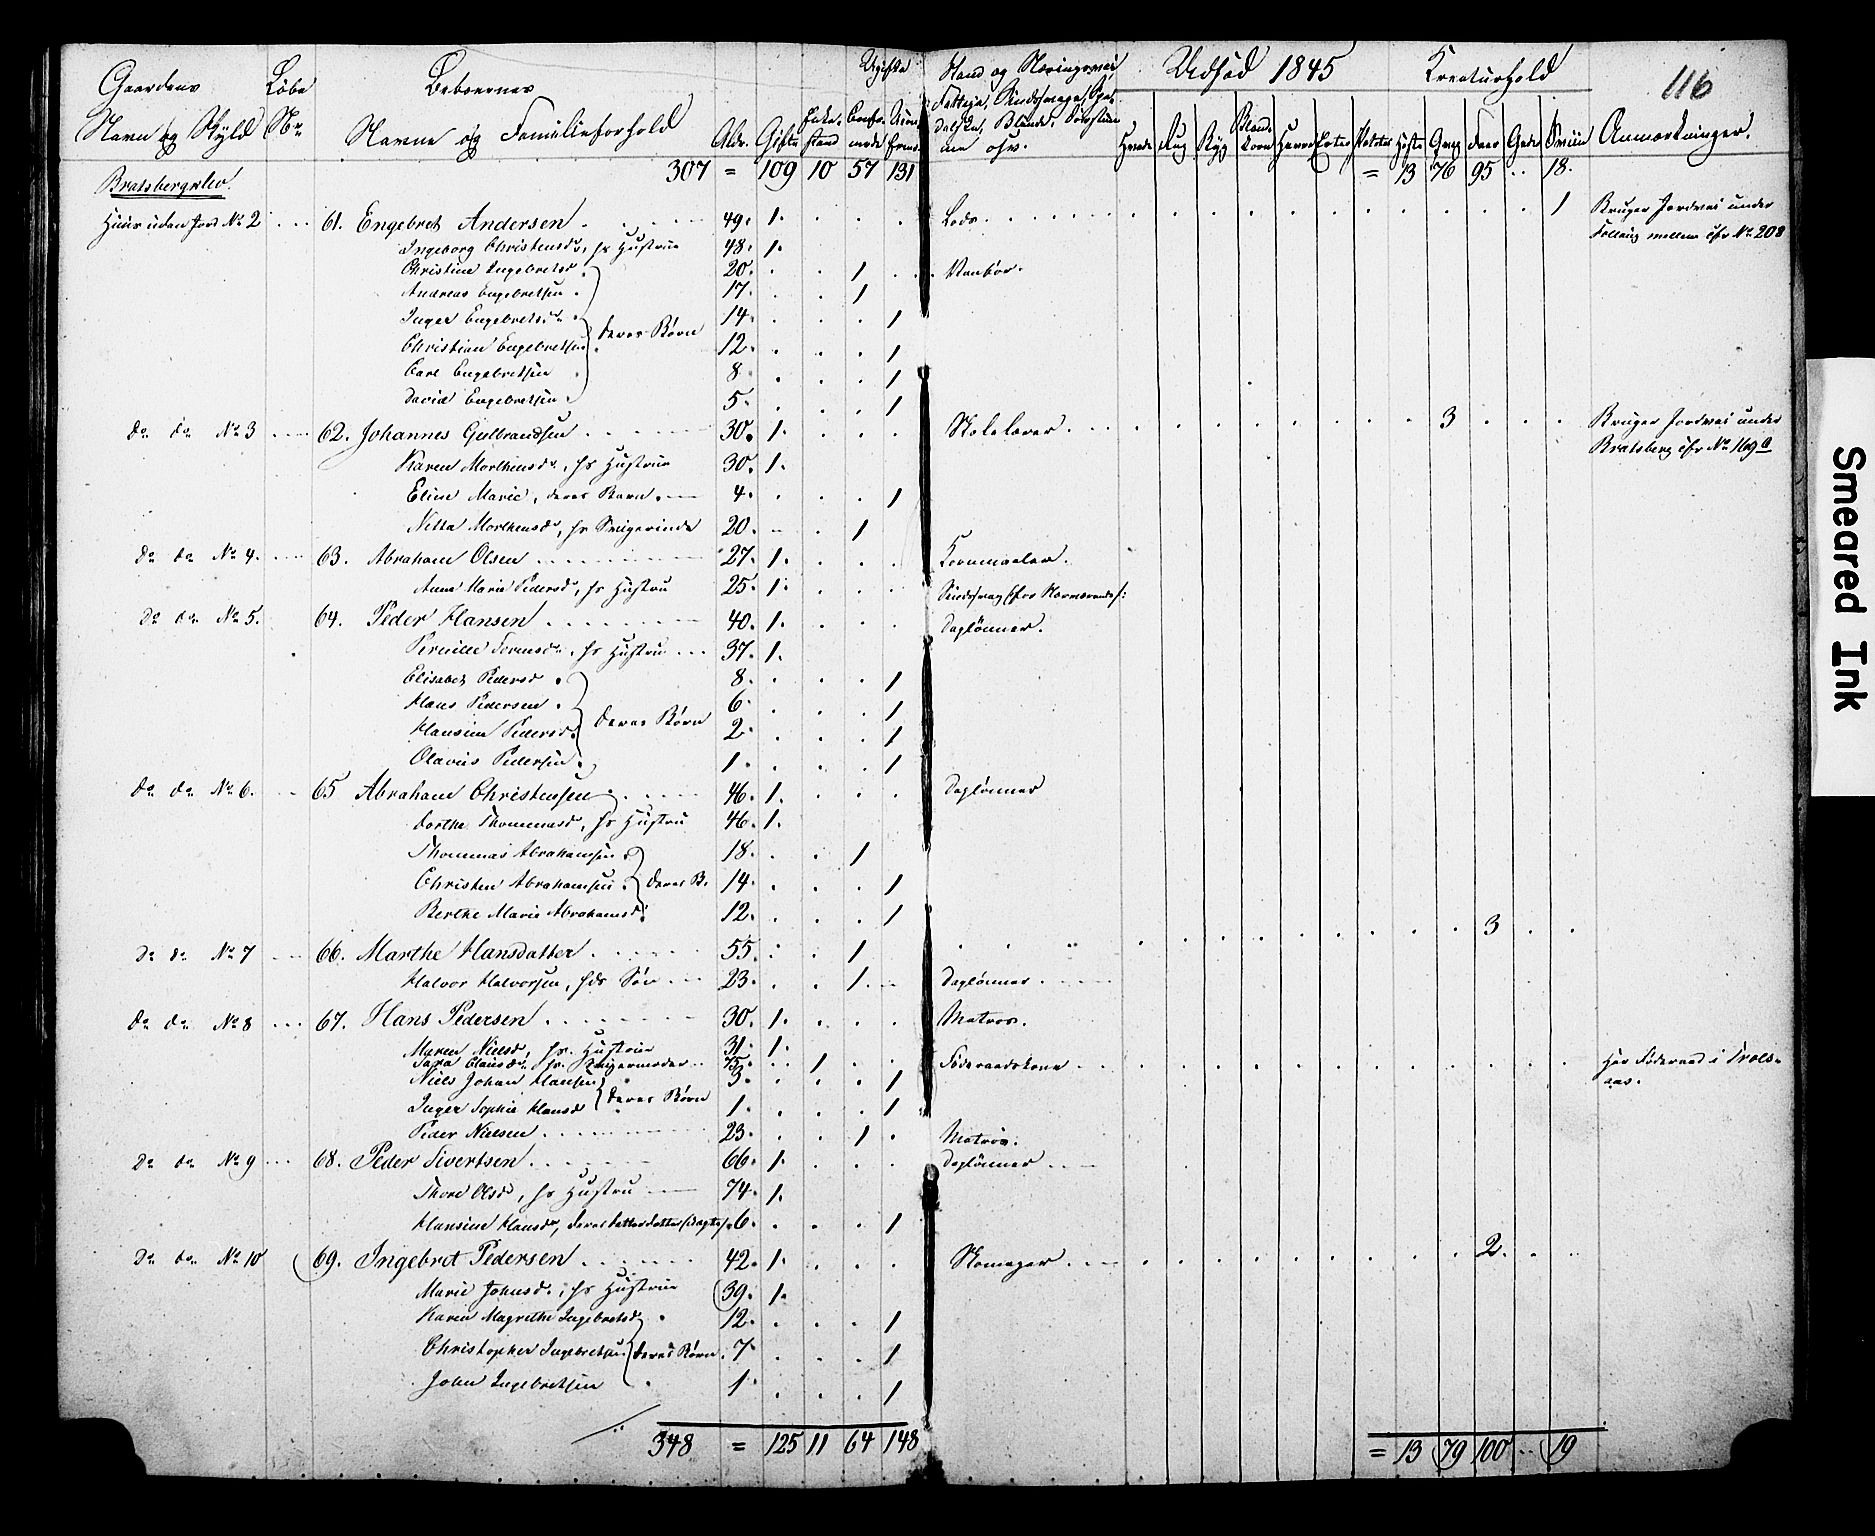 Gaardens Navn og Skyld | Løbe No | Beboernes Navne og Familieforhold | Aldr. | Gifte | Enke-stand | Ugifte Confir-merede | | Stand og Næringsvei, | Udsæd 1845 | Kreaturhold | Anmærkninger. | 116
Hvede | Rug | Byg | Bland-korn | Havre | Erter | Poteter | Heste | Qvæg | Faar | Geder | Sviin
307 = 109 | 10 | 57 | 131 | = 13 | 76 | 95 | .. | 18.
Bratsbergklev.
Huus uden Jord No 2 ... 61. Engebret Andersen 49. 1. | Lods. | 1 | Bruger Jordvei under
Ingeborg Christensdr, hs Hustrue 48. 1. | mellem cfr No 208
Christine Ingebretsd. 20. 1 | Vanfør.
Andreas Engebretsen. 17. 1
Inger Engebretsdr. 14. 1
Christian Engebretsen } deres Børn 12. 1
Carl Engebretsen 8 1
David Engebretsen. 5. 1
Do do No 3 62. Johannes Gulbrandsen 30. 1. | Skolelærer | 3 | Bruger Jordvei under
Karen Morthensdr, hs Hustrue 30. 1. | Bratsberg cfr No 169 a
Eline Marie, deres Barn. 4. 1
Netta Morthensdr, hs Svigerinde 20. 1
Do do No 4. 63. Abraham Olsen 27. 1. | Kornmaaler.
Anne Marie Pedersd, hs Hustru 25. 1.
Do do No 5. 64. Peder Hansen 40. 1. | Daglønner.
Pernille, hs Hustru 37. 1.
Elisabet Pedersd. 8. 1
Hans Pedersen. 6. 1
Hansine Pedersd. } deres Børn 2. 1
Olavus Pedersen. 1. 1
Do do No 6. 65 Abraham Christensen 46. 1. | Daglønner
Dorthe Thommesd, hs Hustru 46. 1.
Thommas Abrahamsen. 18. 1
Christen Abrahamsen. } deres B. 14. 1
Berthe Marie Abrahamsd. 12. 1
Do do No 7 66. Marthe Hansdatter 55. 1 | 3
Halvor Halvorsen, hds Søn 23. 1. | Daglønner
Do do No 8 67. Hans Pedersen 30. 1. | Matros.
Maren Nielsd, hs. Hustrue 31. 1.
Sara Clausdr, hs. Svigermoder 75. 1 | Føderaadskone | Har Føderaad i Trols-
Niels Johan Hansen 3. 1 | aas.
Inger Sophie Hansd } deres Børn 1. 1
Peder Nielsen 23. 1 | Matros.
Do do No 9 68. Peder Sivertsen 66. 1. | Daglønner
Thore Olsd, hs Hustru 74. 1.
Hansine Hansdr, deres Datterdatter 6. 1
Do do No 10 69. Ingebret Pedersen 42. 1. | Skomager | 2.
Marie Johnsd., hs Hustrue 39. 1.
Karen Magrethe Ingebretsd. 12. 1
Christopher Ingebretsen } deres Børn. 7 1
John Ingebretsen 1. 1
348 = 125 | 11 | 64 | 148 | = 13 | 79 | 100 | .. | 19
Smeared Ink